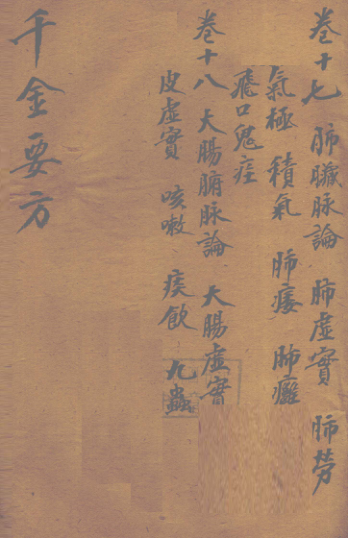 卷十七 肺臟脉論 肺虛實 肺勞
氣極 積氣 肺痿 肺癰
飛尸鬼疰
卷十八 大腸腑脉論 大腸虛實
皮虛實 咳嗽 痰飲 九蟲
千金要方